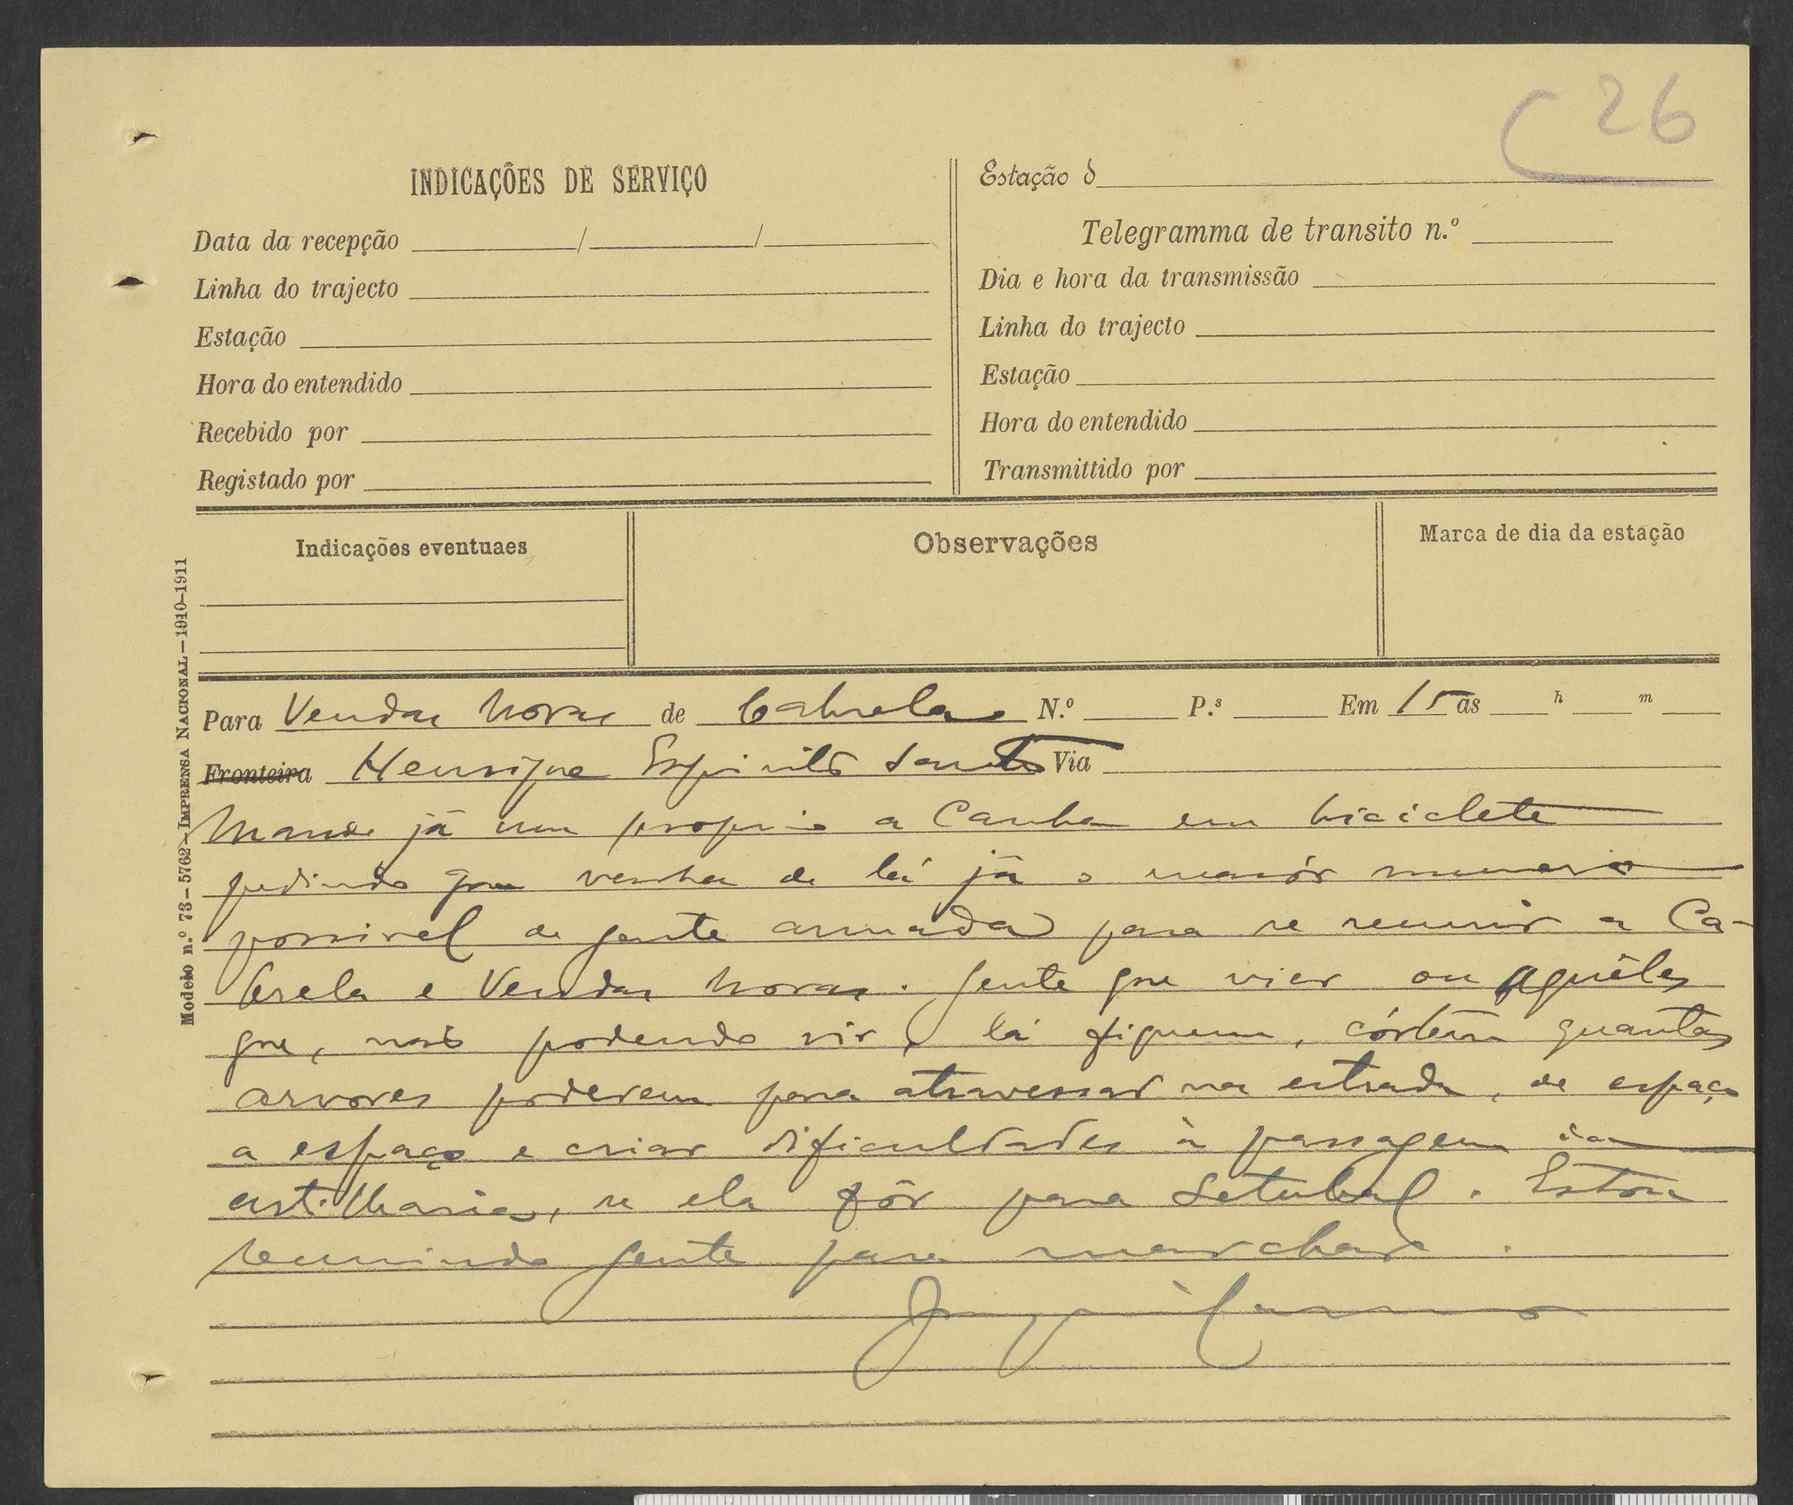 C 26
INDICAÇÕES DE SERVIÇO
Data da recepção / /
Linha do trajecto
Estação
Hora do entendido
Recebido por
Registado por
Estação d
Telegramma de transito n.º
Dia e hora da transmissão
Linha do trajecto
Estação
Hora do entendido
Transmittido por
Indicações eventuaes
Observações
Marca de dia da estação
Modelo n.º 73 — 5762 — IMPRENSA NACIONAL — 1910-1911
Para Vendas Novas de Cabrela N.º P.s Em 15 ás h m
Fronteira Henrique Espirito Santo Via
Mande já um proprio a Canha em biciclete
pedindo que venha de lá já o maiór numero
possivel de gente armada para se reunir a Ca-
brela e Vendas Novas. Gente que vier ou aquêles
que, não podendo vir, lá fiquem, córtem quantas
arvores poderem para atravessar na estrada, de espaço
a espaço e criar dificuldades à passagem da
artilharia, se ela fôr para Setubal. Estou
reunindo gente para marchar.